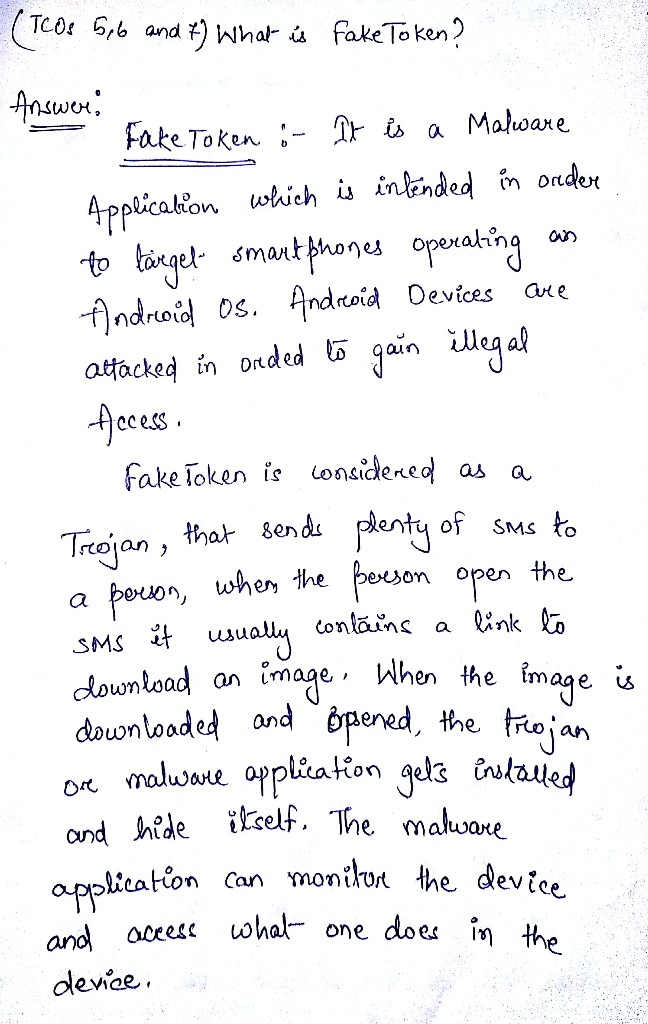 (TCOs 5,6 and 7) What is FakeToken?
Answer:
FakeToken :- It is a Malware
Application which is intended in order
to target smartphones operating on
Android OS. Android Devices are
attacked in orded to gain illegal
Access.
FakeToken is considered as a
Trojan, that sends plenty of SMS to
a person, when the person open the
SMS it usually contains a link to
download an image. When the image is
downloaded and opened, the trojan
or malware application gets installed
and hide itself. The malware
application can monitor the device
and access what one does in the
device.